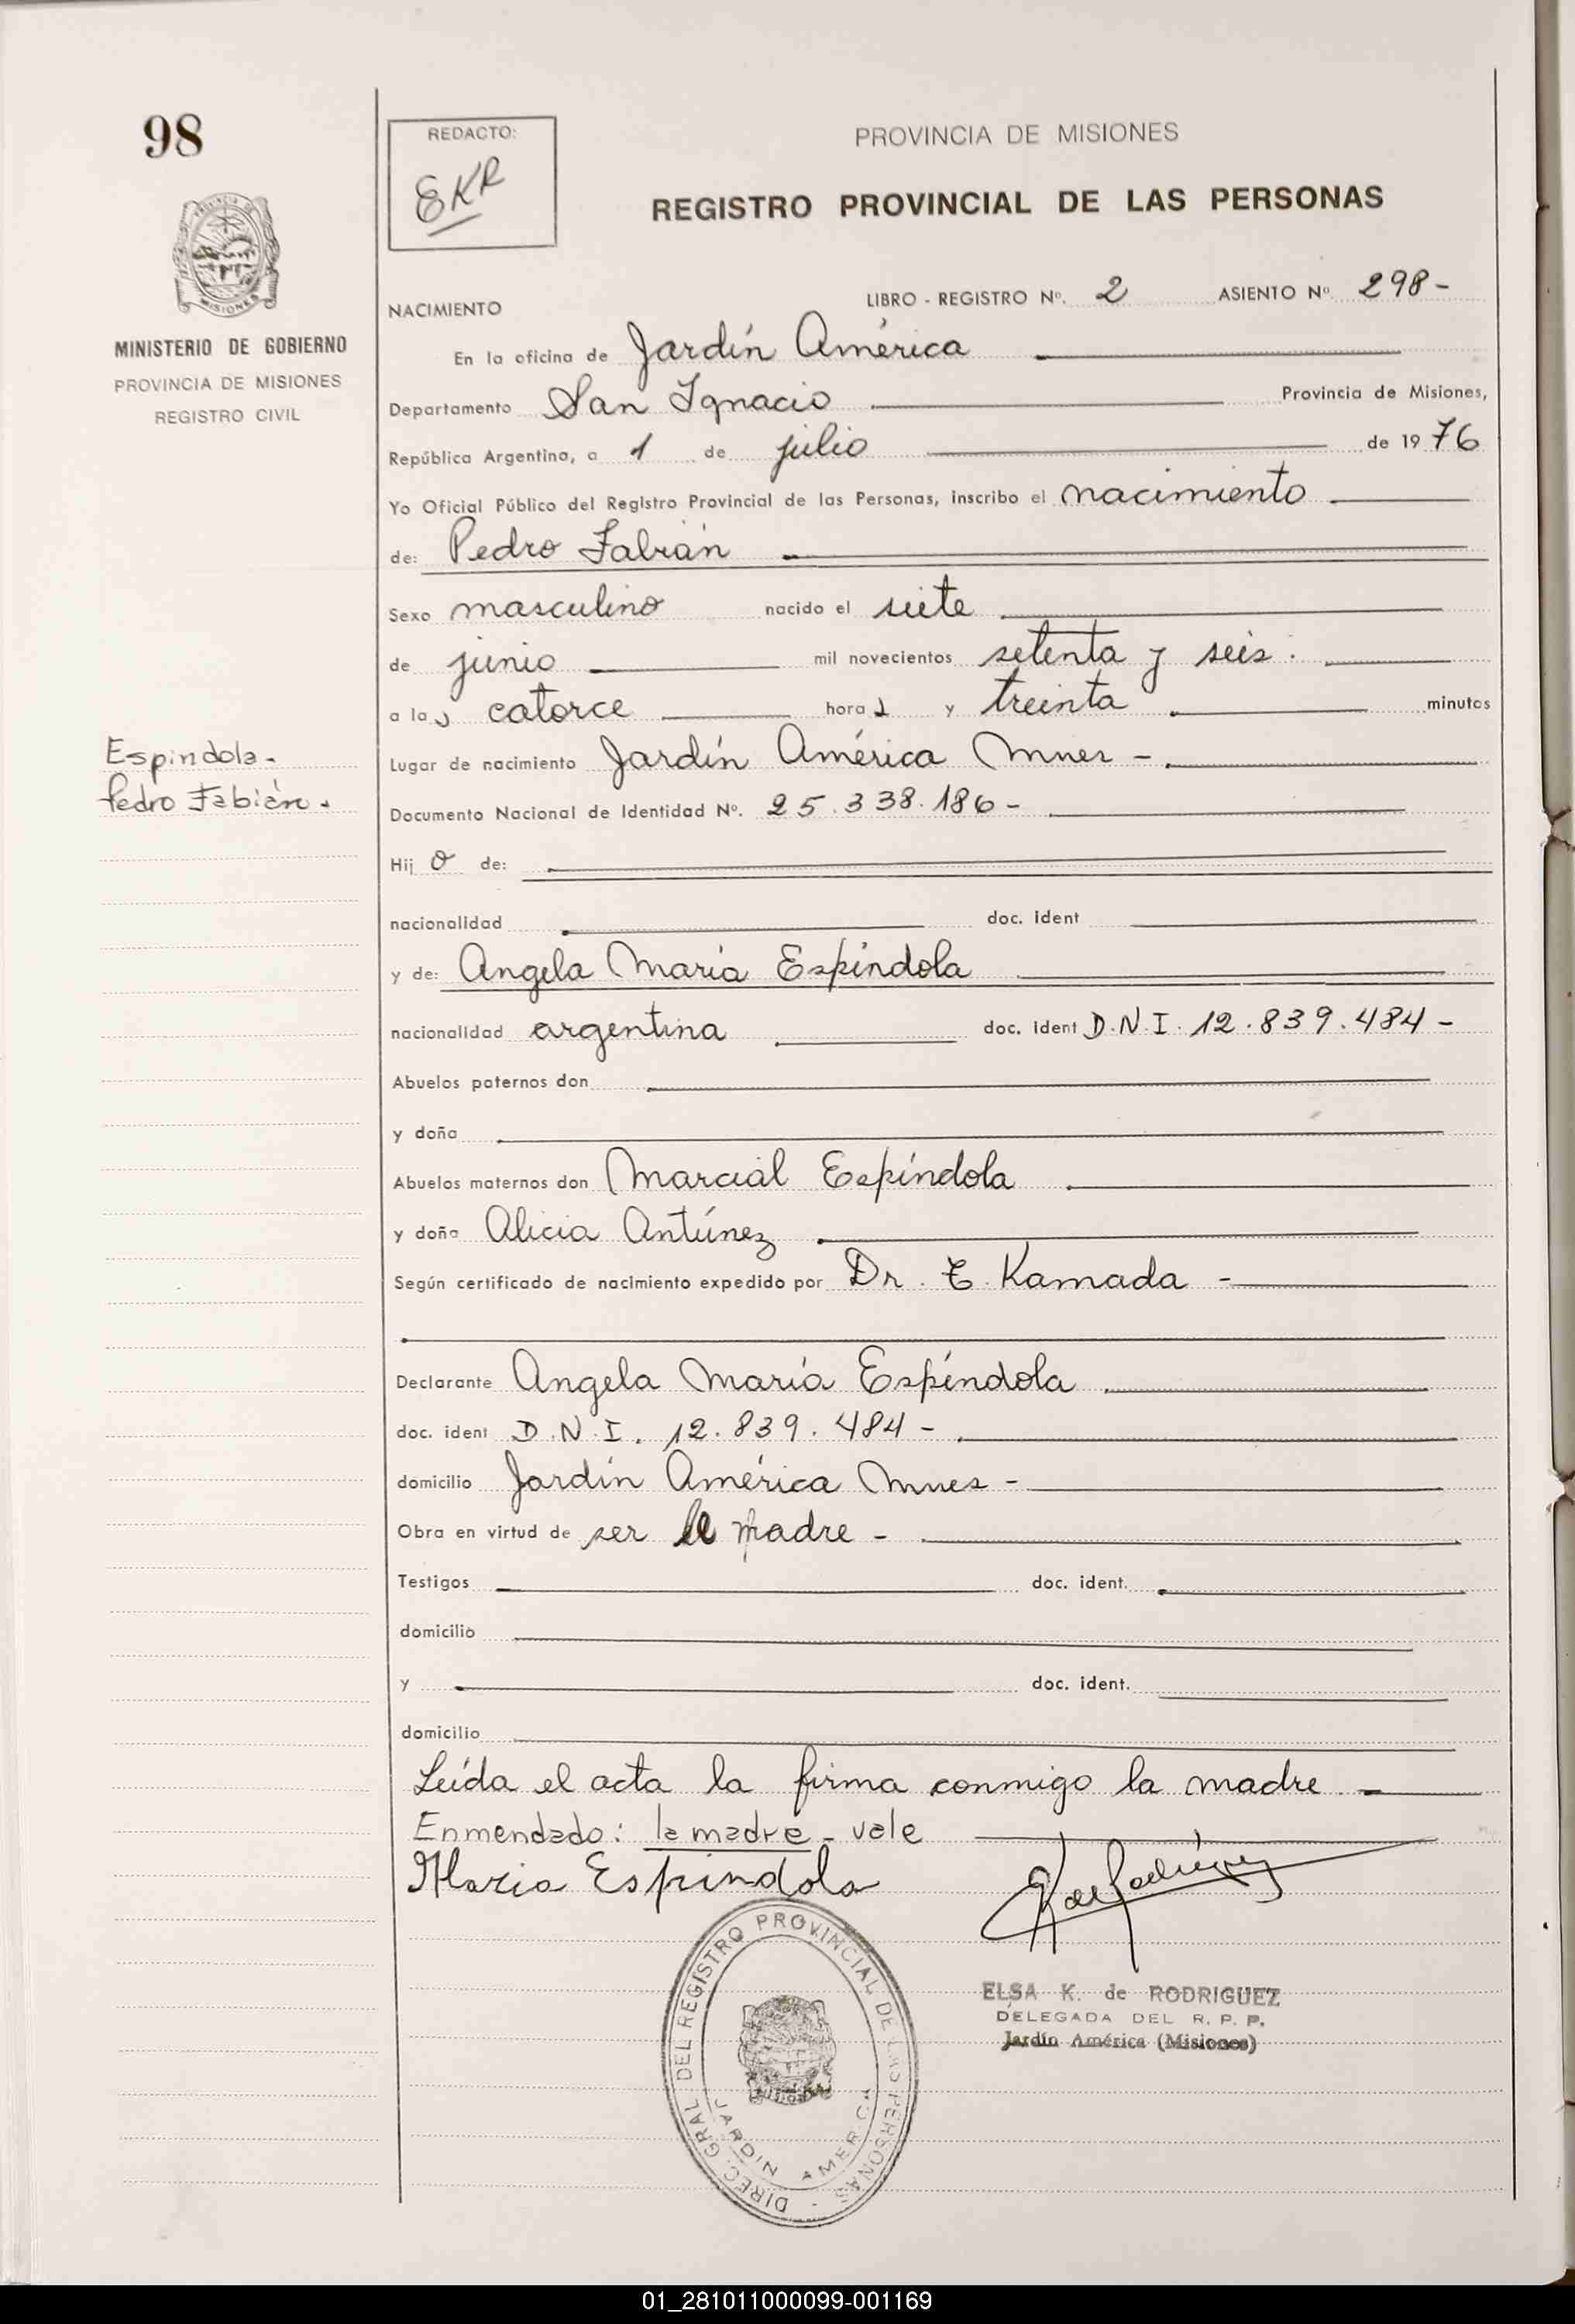 98
REDACTO:
EKR
PROVINCIA DE MISIONES
REGISTRO PROVINCIAL DE LAS PERSONAS
MISIONES
MINISTERIO DE GOBIERNO
PROVINCIA DE MISIONES
REGISTRO CIVIL
NACIMIENTO LIBRO - REGISTRO Nº. 2 ASIENTO Nº 298 -
En la oficina de Jardín América
Departamento San Ignacio Provincia de Misiones,
República Argentina, a 1 de julio de 1976
Yo Oficial Público del Registro Provincial de las Personas, inscribo el nacimiento
de: Pedro Fabián
Sexo masculino nacido el siete
de junio mil novecientos setenta y seis.
a las catorce horas y treinta minutos
Espindola -
Pedro Fabián.
Lugar de nacimiento Jardín América Mnes -
Documento Nacional de Identidad Nº. 25.338.186 -
Hijo de:
nacionalidad doc. ident
y de: Angela María Espíndola
nacionalidad argentina doc. ident D.N.I. 12.839.484 -
Abuelos paternos don
y doña
Abuelos maternos don Marcial Espíndola
y doña Alicia Antúnez
Según certificado de nacimiento expedido por Dr. E. Kamada -
Declarante Angela María Espíndola
doc. ident D.N.I. 12.839.484 -
domicilio Jardín América Mnes -
Obra en virtud de ser la madre -
Testigos doc. ident.
domicilio
y doc. ident.
domicilio
Leída el acta la firma conmigo la madre -
Enmendado: la madre - vale
Maria Espindola
DIREC. GRAL DEL REGISTRO PROVINCIAL DE LAS PERSONAS -
JARDIN AMERICA
ELSA K. de RODRIGUEZ
DELEGADA DEL R. P. P.
Jardín América (Misiones)
01_281011000099-001169